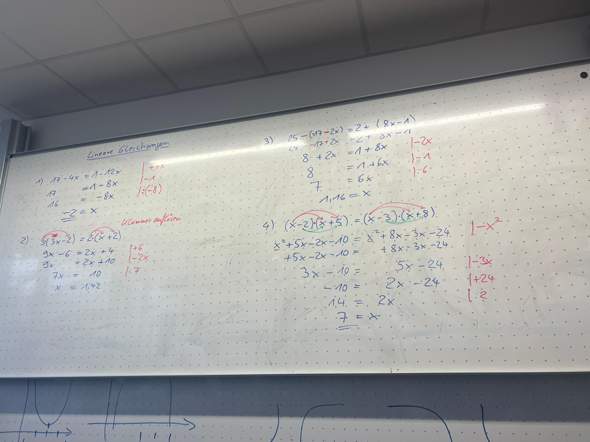 Lineare Gleichungen
1) 17-4x = 1-12x
17 = 1-8x |-1
16 = -8x |:(-8)
-2 = x
Klammer auflösen
2) 3(3x-2) = 2(x+2)
9x-6 = 2x+4 |+6
9x = 2x+10 |-2x
7x = 10 |:7
x = 1,42
3) 25-(17-2x) = 2+(8x-1)
25-17+2x = 2+8x-1
8+2x = 1+8x |-2x
8 = 1+6x |-1
7 = 6x |:6
1,16 = x
4) (x-2)·(x+5) = (x-3)·(x+8)
x²+5x-2x-10 = x²+8x-3x-24 |-x²
+5x-2x-10 = +8x-3x-24
3x-10 = 5x-24 |-3x
-10 = 2x-24 |+24
14 = 2x |:2
7 = x